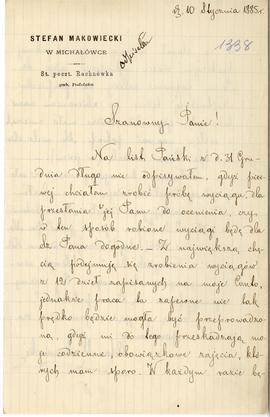 d. 10 Stycznia 1885 r.
STEFAN MAKOWIECKI
W MICHAŁÓWCE
St. poczt. Rachnówka
gub. Podolska
1338
Szanowny Panie!
Na list Pański z d. 31 Gru-
dnia długo nie odpisywałem, gdyż pier-
wej chciałem zrobić próbę wyciągu, dla
przesłania jej Panu do ocenienia, czy
w ten sposób robione wyciągi będą dla
Sz. Pana dogodne. – Z największą chę-
cią podejmuję się zrobienia wyciągów
z 12 dzieł zapisanych na moje Conto,
jednakże praca ta zapewne nie tak
prędko będzie mogła być przeprowadzo-
ną, gdyż mi do tego przeszkadzają mo-
je codzienne, obowiązkowe zajęcia, któ-
rych mam sporo. W każdym razie bę-